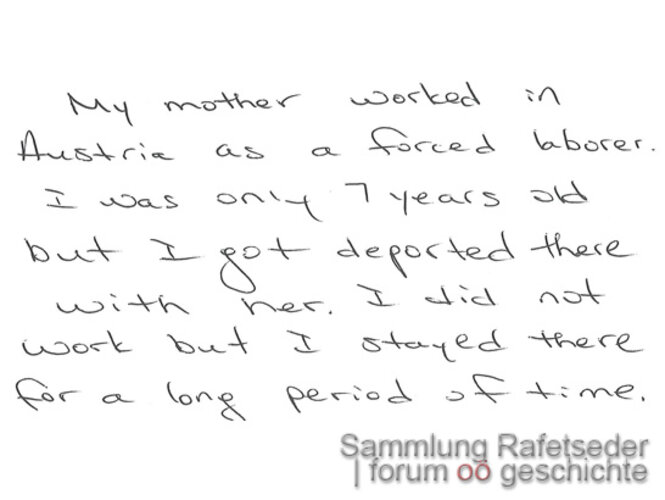 My mother worked in
Austria as a forced laborer.
I was only 7 years old
but I got deported there
with her. I did not
work but I stayed there
for a long period of time.
Sammlung Rafetseder
| forum oö geschichte